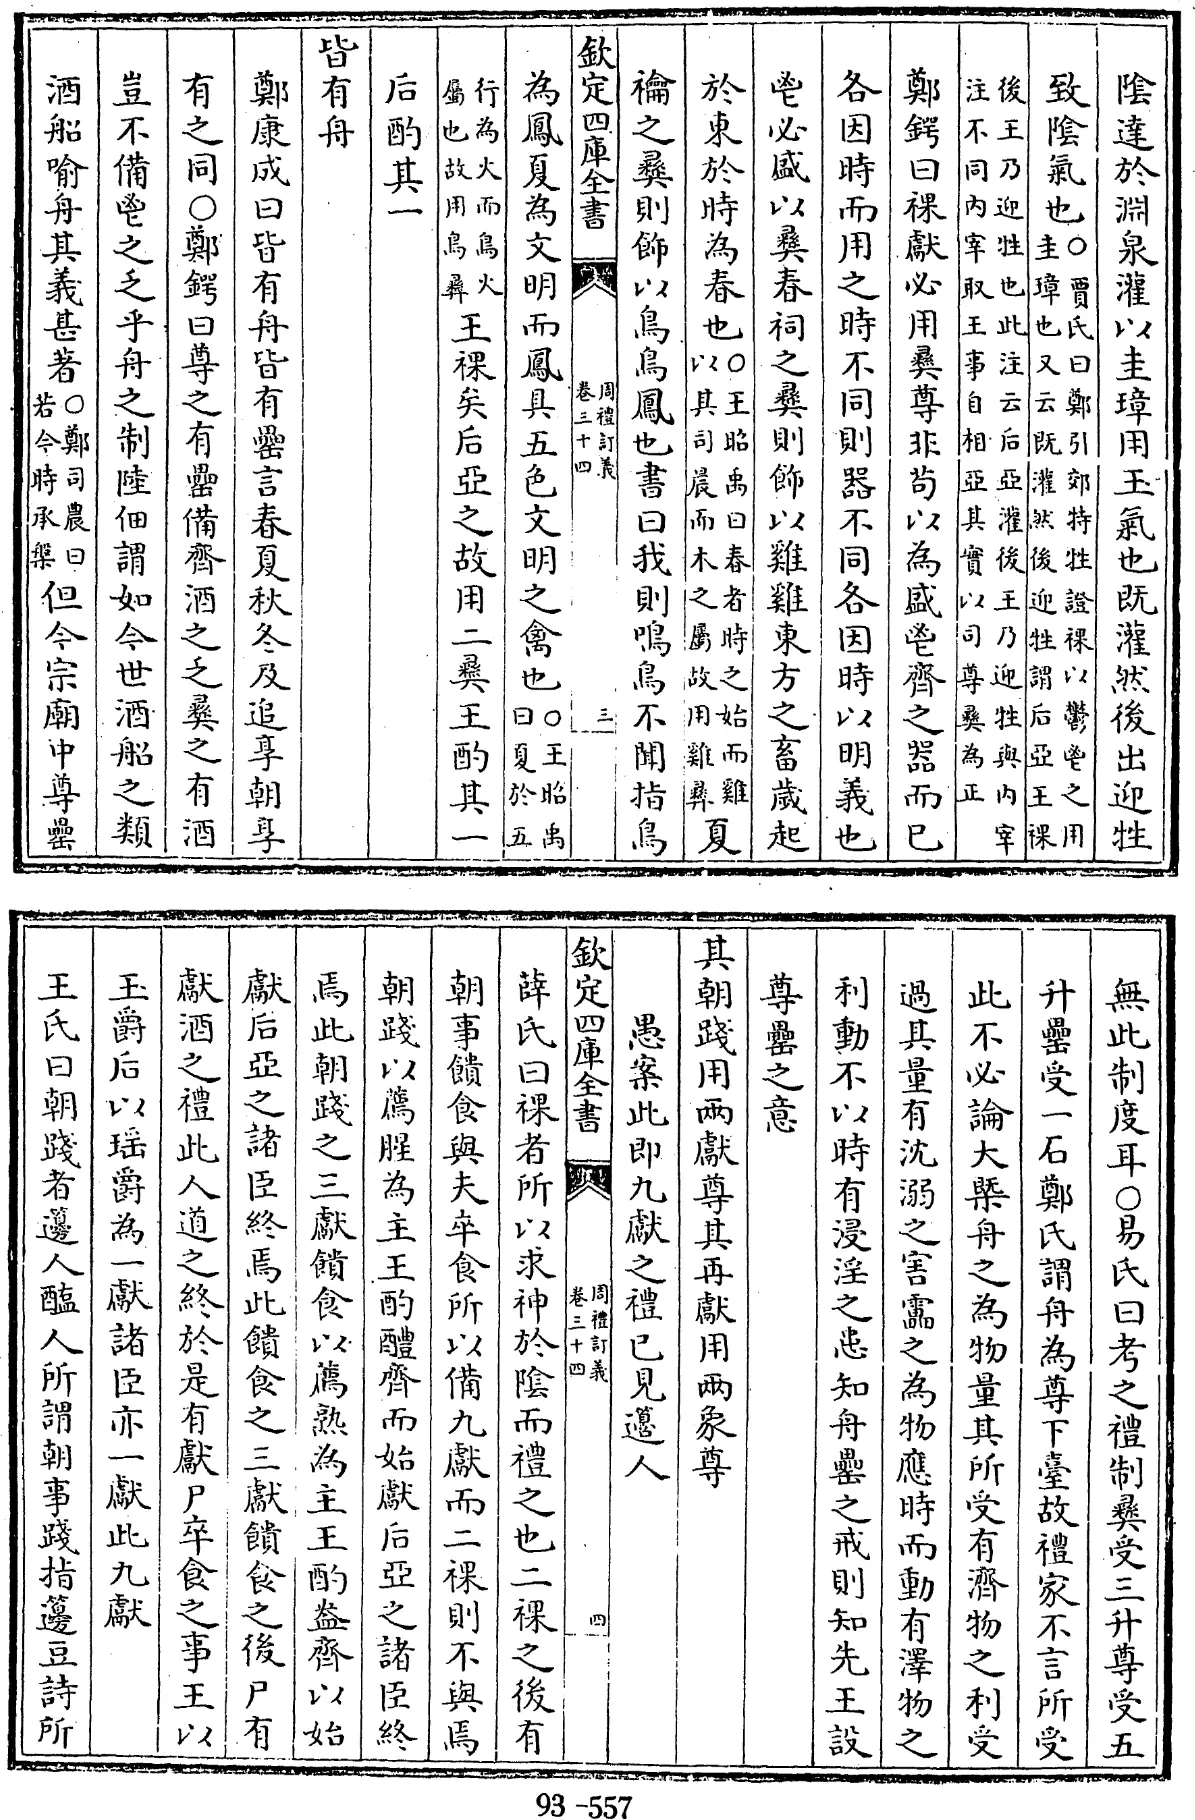 陰達於淵泉灌以圭璋用玉氣也既灌然後出迎牲
致陰氣也○賈氏曰鄭引郊特牲證祼以鬱鬯之用
圭璋也又云既灌然後迎牲謂后亞王祼
後王乃迎牲也此注云后亞灌後王乃迎牲與内宰
注不同内宰取王事自相亞其實以司尊彞為正
鄭鍔曰祼獻必用彞尊非苟以為盛鬯齊之器而已
各因時而用之時不同則器不同各因時以明義也
鬯必盛以彞春祠之彞則飾以雞雞東方之畜歲起
於東於時為春也○王昭禹曰春者時之始而雞
以其司晨而木之屬故用雞彞夏
禴之彞則飾以鳥鳥鳳也書曰我則鳴鳥不聞指鳥
欽定四庫全書
周禮訂義
卷三十四
三
為鳳夏為文明而鳳具五色文明之禽也○王昭禹
曰夏於五
行為火而鳥火
屬也故用鳥彞王祼矣后亞之故用二彞王酌其一
后酌其一
皆有舟
鄭康成曰皆有舟皆有罍言春夏秋冬及追享朝享
有之同○鄭鍔曰尊之有罍備齊酒之乏彞之有酒
豈不備鬯之乏乎舟之制陸佃謂如今世酒船之類
酒船喻舟其義甚著○鄭司農曰
若今時承槃但今宗廟中尊罍
無此制度耳○易氏曰考之禮制彞受三升尊受五
升罍受一石鄭氏謂舟為尊下臺故禮家不言所受
此不必論大槩舟之為物量其所受有濟物之利受
過其量有沈溺之害靁之為物應時而動有澤物之
利動不以時有浸淫之患知舟罍之戒則知先王設
尊罍之意
其朝踐用兩獻尊其再獻用兩象尊
愚案此即九獻之禮已見籩人
欽定四庫全書
周禮訂義
卷三十四
四
薛氏曰祼者所以求神於陰而禮之也二祼之後有
朝事饋食與夫卒食所以備九獻而二祼則不與焉
朝踐以薦腥為主王酌醴齊而始獻后亞之諸臣終
焉此朝踐之三獻饋食以薦熟為主王酌盎齊以始
獻后亞之諸臣終焉此饋食之三獻饋食之後尸有
獻酒之禮此人道之終於是有獻尸卒食之事王以
玉爵后以瑶爵為一獻諸臣亦一獻此九獻
王氏曰朝踐者籩人醢人所謂朝事踐指籩豆詩所
93-557